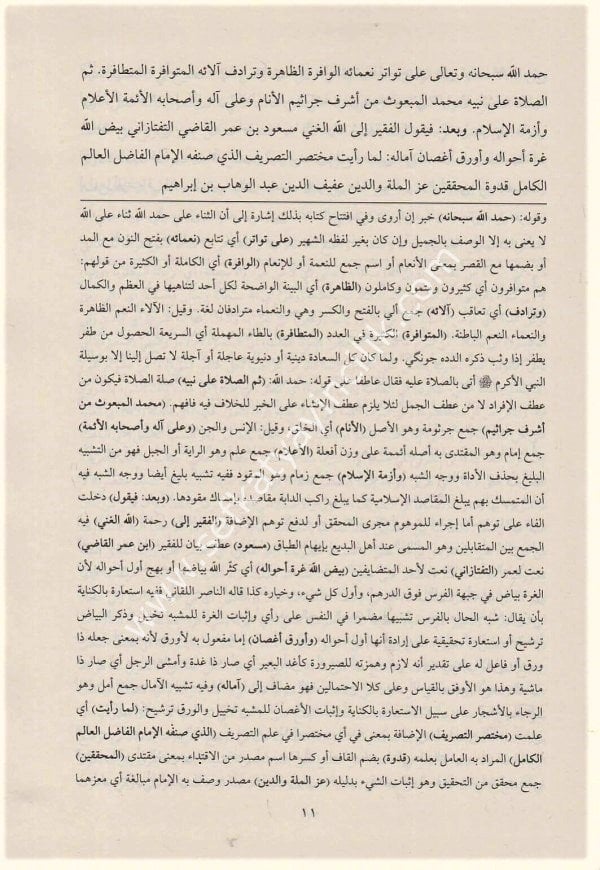 حمد الله سبحانه وتعالى على تواتر نعمائه الوافرة الظاهرة وترادف آلائه المتوافرة المتطافرة. ثم
الصلاة على نبيه محمد المبعوث من أشرف جراثيم الأنام وعلى آله وأصحابه الأئمة الأعلام
وأزمة الإسلام. وبعد: فيقول الفقير إلى الله الغني مسعود بن عمر القاضي التفتازاني بيض الله
غرة أحواله وأورق أغصان آماله: لما رأيت مختصر التصريف الذي صنفه الإمام الفاضل العالم
الكامل قدوة المحققين عز الملة والدين عفيف الدين عبد الوهاب بن إبراهيم
وقوله: (حمد الله سبحانه) خبر إن أروى وفي افتتاح كتابه بذلك إشارة إلى أن الثناء على حمد الله ثناء على الله
لا يعنى به إلا الوصف بالجميل وإن كان بغير لفظه الشهير (على تواتر) أي تتابع (نعمائه) بفتح النون مع المد
أو بضمها مع القصر بمعنى الأنعام أو اسم جمع للنعمة أو للإنعام (الوافرة) أي الكاملة أو الكثيرة من قولهم:
هم متوافرون أي كثيرون وكاملون (الظاهرة) أي البينة الواضحة لكل أحد لتناهيها في العظم والكمال
(وترادف) أي تعاقب (آلائه) جمع ألي بالفتح والكسر وهي والنعماء مترادفان لغة. وقيل: الآلاء النعم الظاهرة
والنعماء النعم الباطنة. (المتوافرة) الكثيرة في العدد (المتطافرة) بالطاء المهملة أي السريعة الحصول من طفر
يطفر إذا وثب ذكره الدده جونگي. ولما كان كل السعادة دينية أو دنيوية عاجلة أو آجلة لا تصل إلينا إلا بوسيلة
النبي الأكرم ﷺ أتى بالصلاة عليه فقال عاطفا على قوله: حمد الله: (ثم الصلاة على نبيه) صلة الصلاة فيكون من
عطف الإفراد لا من عطف الجمل لئلا يلزم عطف الإنشاء على الخبر للخلاف فيه فافهم. (محمد المبعوث من
أشرف جراثيم) جمع جرثومة وهو الأصل (الأنام) أي الخلق، وقيل: الإنس والجن (وعلى آله وأصحابه الأئمة)
جمع إمام وهو المقتدى به أصله أئممة على وزن أفعلة (الأعلام) جمع علم وهو الراية أو الجبل فهو من التشبيه
البليغ بحذف الأداة ووجه الشبه (وأزمة الإسلام) جمع زمام وهو المقود ففيه تشبيه بليغ أيضا ووجه الشبه فيه
أن المتمسك بهم يبلغ المقاصد الإسلامية كما يبلغ راكب الدابة مقاصده بإمساك مقودها. (وبعد: فيقول) دخلت
الفاء على توهم أما إجراء للموهوم مجرى المحقق أو لدفع توهم الإضافة (الفقير إلى) رحمة (الله الغني) فيه
الجمع بين المتقابلين وهو المسمى عند أهل البديع بإيهام الطباق (مسعود) عطف بيان للفقير (ابن عمر القاضي)
نعت لعمر (التفتازاني) نعت لأحد المتضايفين (بيض الله غرة أحواله) أي كثر الله بياضها أو بهج أول أحواله لأن
الغرة بياض في جبهة الفرس فوق الدرهم، وأول كل شيء، وخياره كذا قاله الناصر اللقاني ففيه استعارة بالكناية
بأن يقال: شبه الحال بالفرس تشبيها مضمرا في النفس على رأي وإثبات الغرة للمشبه تخييل وذكر البياض
ترشيح أو استعارة تحقيقية على إرادة أنها أول أحواله (وأورق أغصان) إما مفعول به لأورق لأنه بمعنى جعله ذا
ورق أو فاعل له على تقدير أنه لازم وهمزته للصيرورة كأغد البعير أي صار ذا غدة وأمشى الرجل أي صار ذا
ماشية وهذا هو الأوفق بالقياس وعلى كلا الاحتمالين فهو مضاف إلى (آماله) وفيه تشبيه الآمال جمع أمل وهو
الرجاء بالأشجار على سبيل الاستعارة بالكناية وإثبات الأغصان للمشبه تخييل والورق ترشيح: (لما رأيت) أي
علمت (مختصر التصريف) الإضافة بمعنى في أي مختصرا في علم التصريف (الذي صنفه الإمام الفاضل العالم
الكامل) المراد به العامل بعلمه (قدوة) بضم القاف أو كسرها اسم مصدر من الاقتداء بمعنى مقتدى (المحققين)
جمع محقق من التحقيق وهو إثبات الشيء بدليله (عز الملة والدين) مصدر وصف به الإمام مبالغة أي معزهما
١١